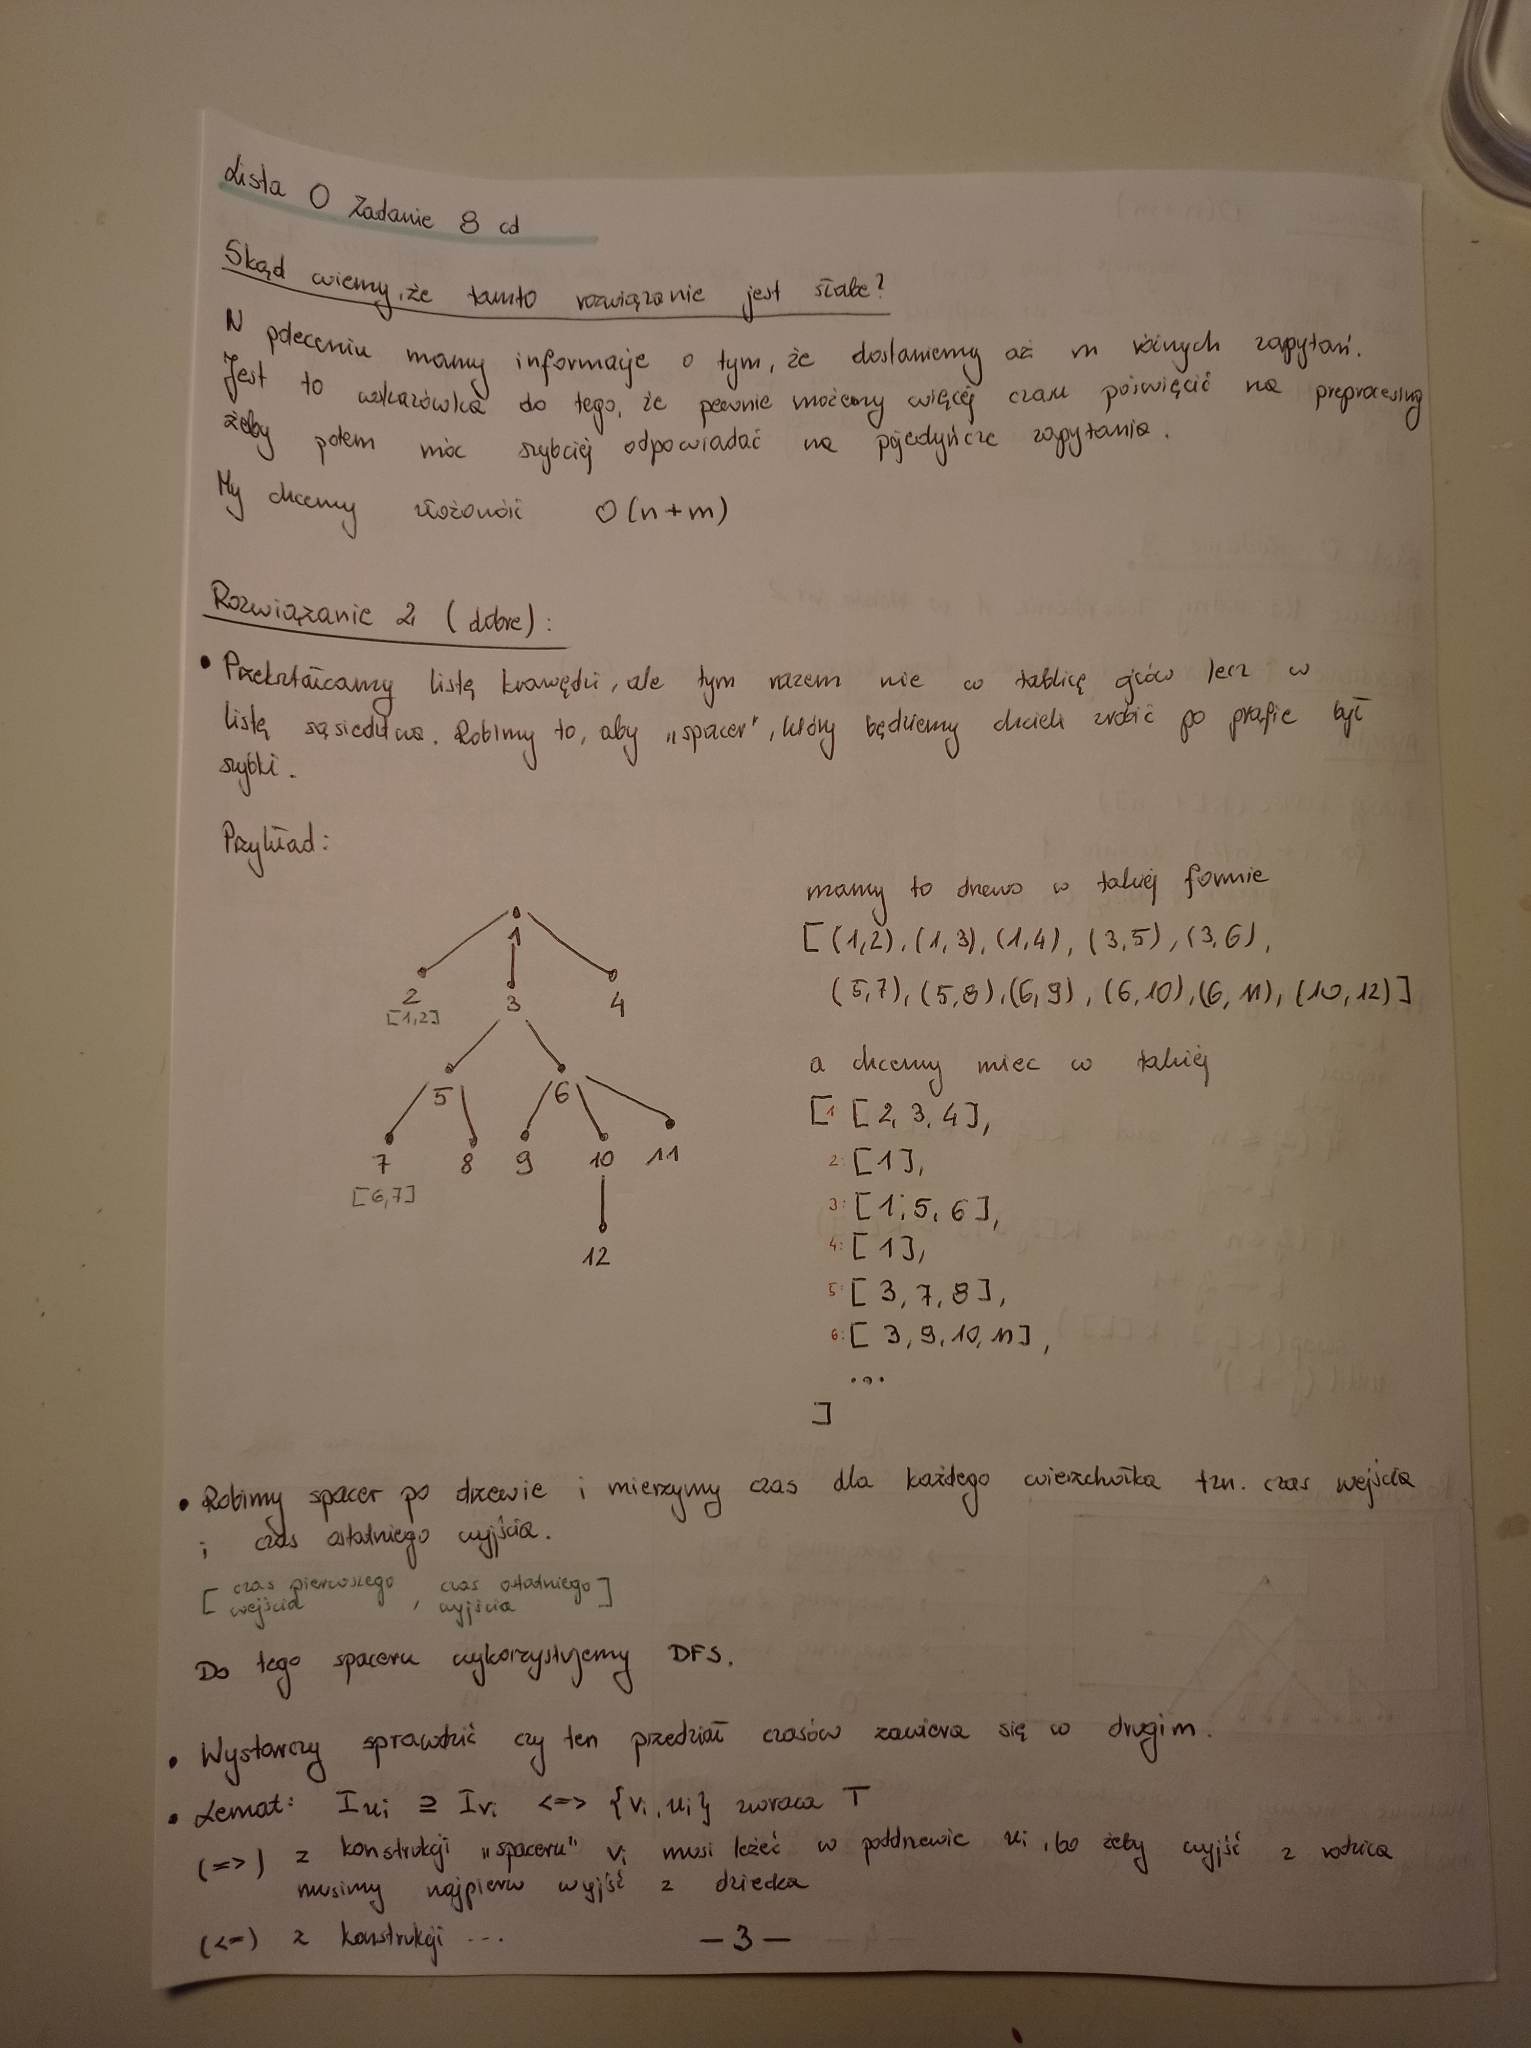 Lista 0 Zadanie 8 cd
Skąd wiemy, że tamto rozwiązanie jest słabe?
W poleceniu mamy informację o tym, że dostaniemy aż m różnych zapytań.
Jest to wskazówka do tego, że pewnie możemy więcej czasu poświęcić na preprocesing
żeby potem móc szybciej odpowiadać na pojedyńcze zapytania.
My chcemy złożoność O(n+m)
Rozwiązanie 2 (dobre):
• Przekształcamy listę krawędzi, ale tym razem nie w tablicę ojców lecz w
listę sąsiedztwa. Robimy to, aby „spacer", który będziemy chcieli zrobić po grafie był
szybki.
Przykład:
mamy to drzewo w takiej formie
[(1,2), (1,3), (1,4), (3,5), (3,6),
(5,7), (5,8), (6,9), (6,10), (6,11), (10,12)]
a chcemy miec w takiej
[ 1 [2, 3, 4],
2: [1],
3: [1, 5, 6],
4: [1],
5: [3, 7, 8],
6: [3, 9, 10, 11],
...
]
1
2 3 4
[1,2]
5 6
7 8 9 10 11
[6,7]
12
• Robimy spacer po drzewie i mierzymy czas dla każdego wierzchołka tzn. czas wejścia
i czas ostatniego wyjścia.
[ czas pierwszego wejścia , czas ostatniego wyjścia ]
Do tego spaceru wykorzystujemy DFS.
• Wystarczy sprawdzić czy ten przedział czasów zawiera się w drugim.
• Lemat: Iui ⊇ Ivi <=> {vi, ui} zwraca T
(=>) z konstrukcji „spaceru" vi musi leżeć w poddrzewie ui, bo żeby wyjść z rodzica
musimy najpierw wyjść z dziecka
(<=) z konstrukcji ...
- 3 -